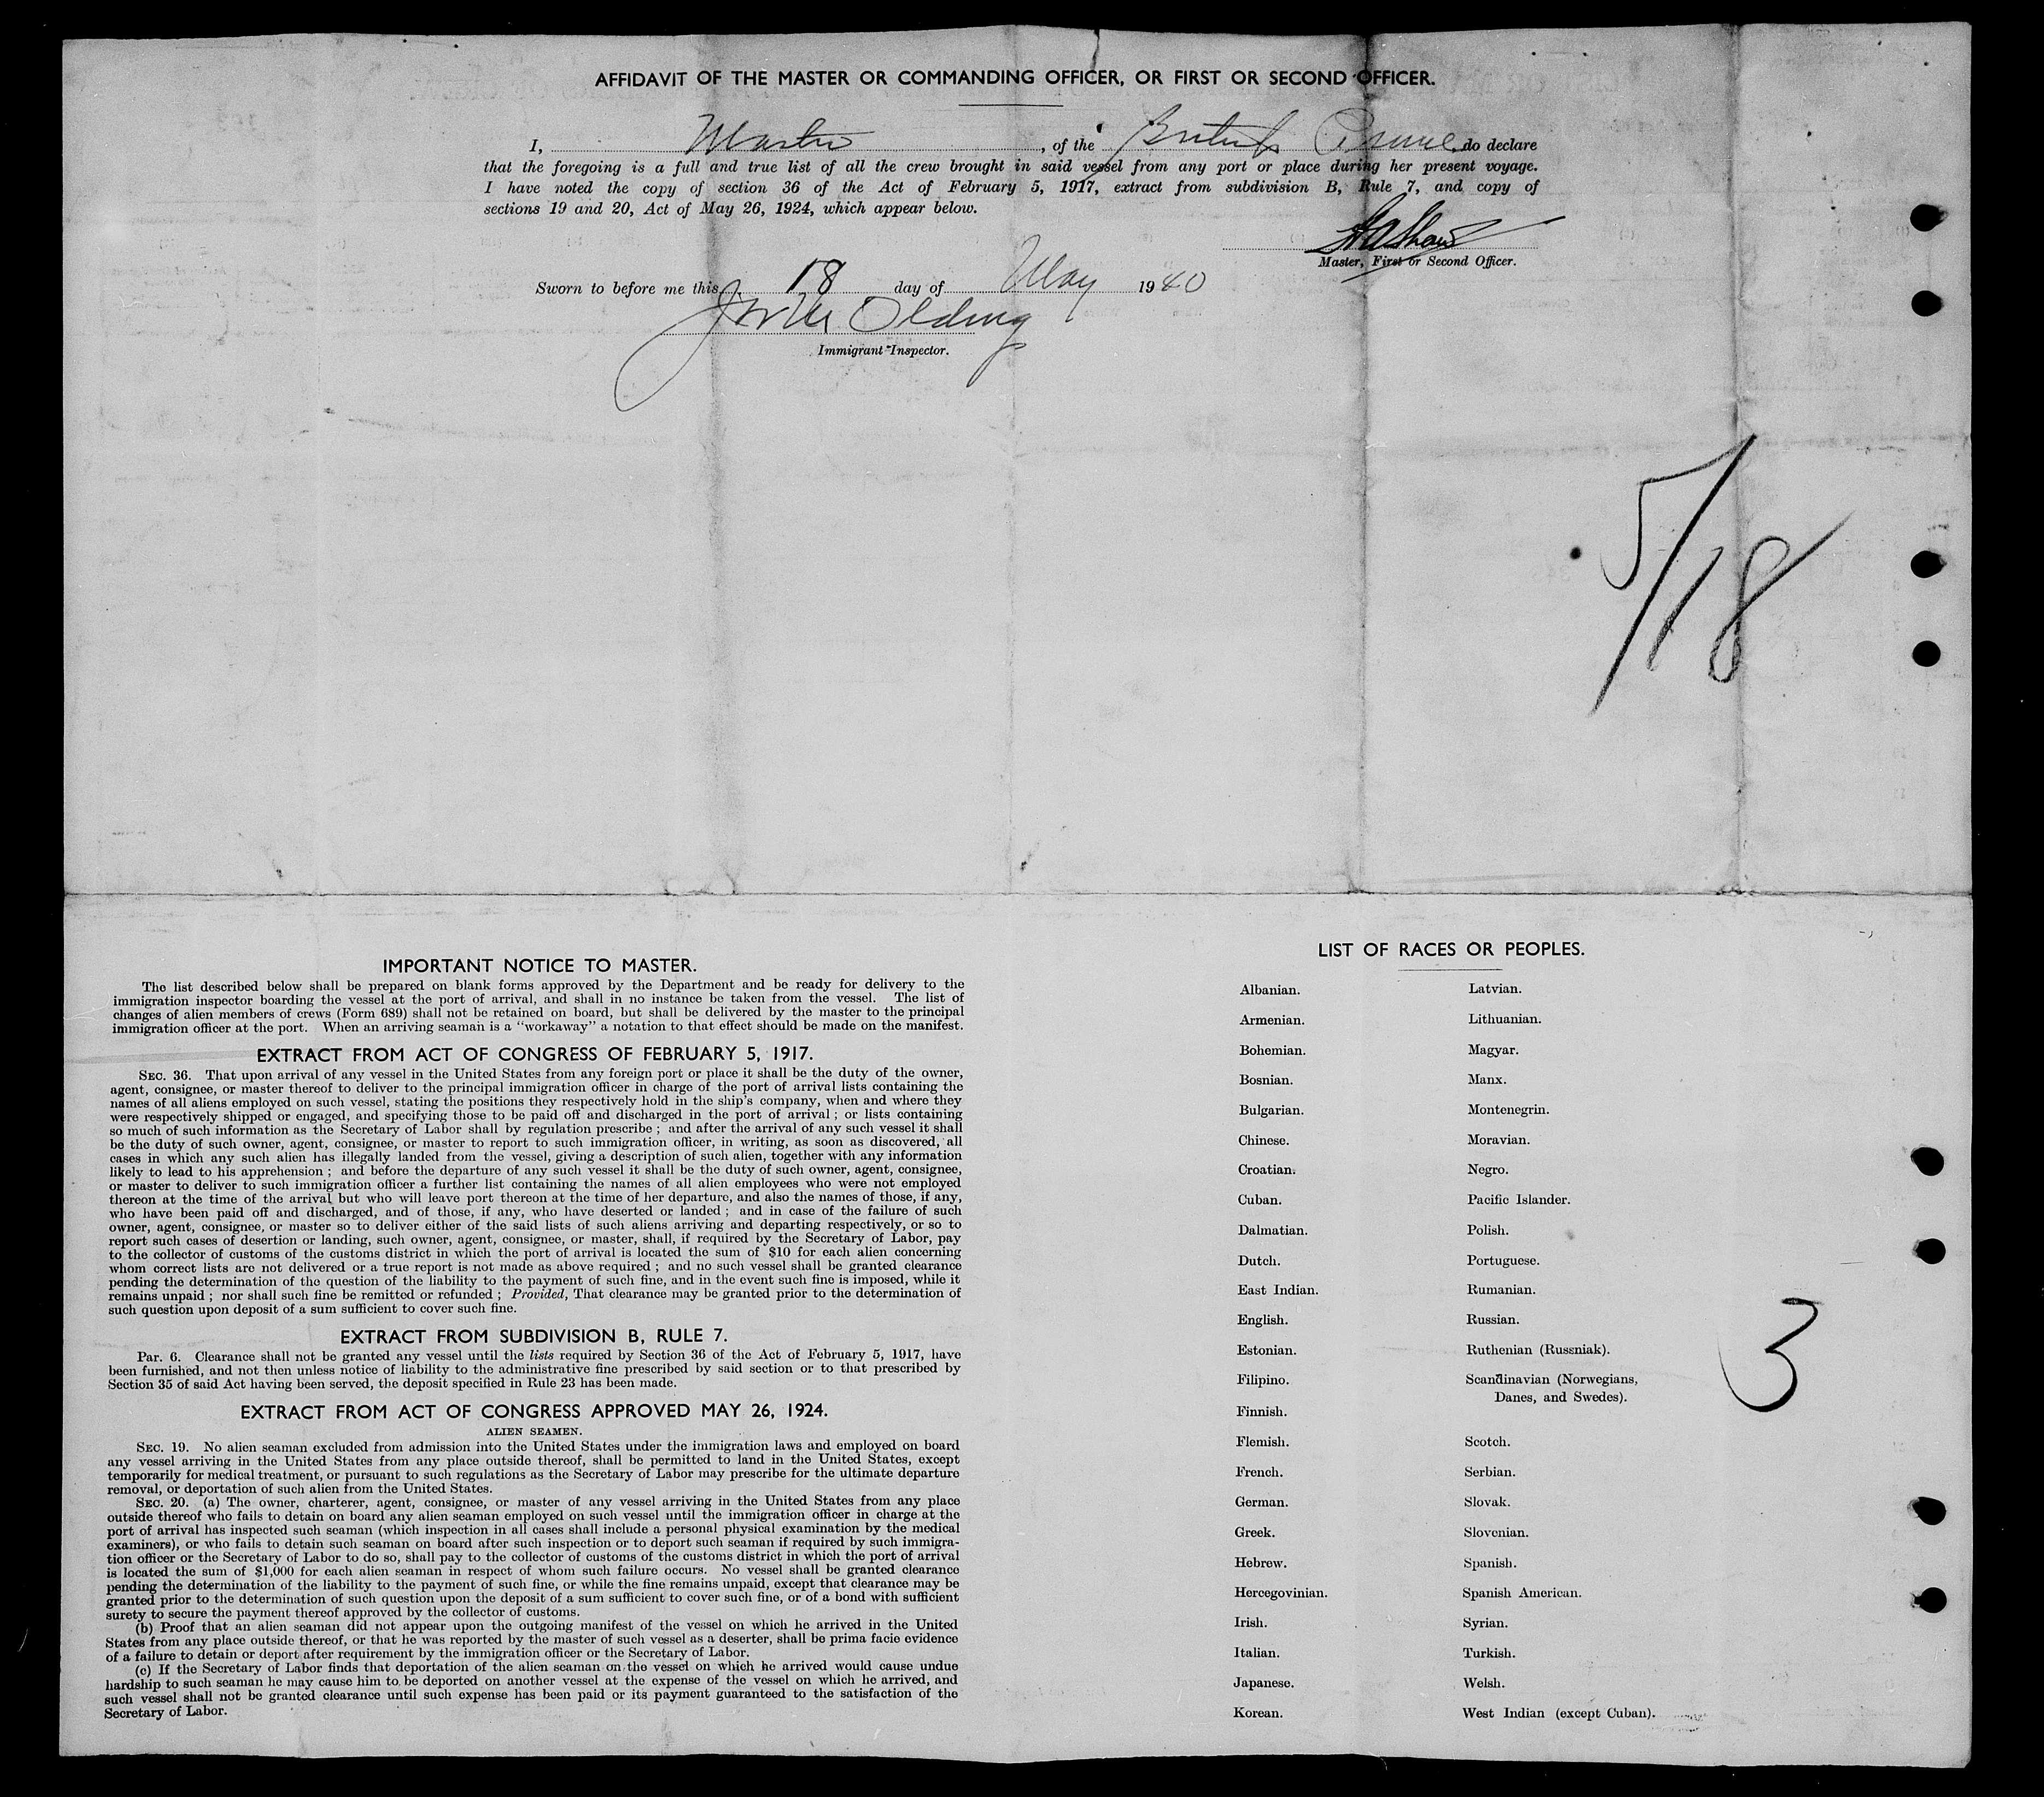 AFFIDAVIT OF THE MASTER OR COMMANDING OFFICER, OR FIRST OR SECOND OFFICER.
I, Master, of the British Prince do declare
that the foregoing is a full and true list of all the crew brought in said vessel from any port or place during her present voyage.
I have noted the copy of section 36 of the Act of February 5, 1917, extract from subdivision B, Rule 7, and copy of
sections 19 and 20, Act of May 26, 1924, which appear below.
Shaw
Master, First or Second Officer.
Sworn to before me this 18 day of May 1940
Olding
Immigrant Inspector.
5/18
IMPORTANT NOTICE TO MASTER.
The list described below shall be prepared on blank forms approved by the Department and be ready for delivery to the
immigration inspector boarding the vessel at the port of arrival, and shall in no instance be taken from the vessel. The list of
changes of alien members of crews (Form 689) shall not be retained on board, but shall be delivered by the master to the principal
immigration officer at the port. When an arriving seaman is a "workaway" a notation to that effect should be made on the manifest.
EXTRACT FROM ACT OF CONGRESS OF FEBRUARY 5, 1917.
SEC. 36. That upon arrival of any vessel in the United States from any foreign port or place it shall be the duty of the owner,
agent, consignee, or master thereof to deliver to the principal immigration officer in charge of the port of arrival lists containing the
names of all aliens employed on such vessel, stating the positions they respectively hold in the ship's company, when and where they
were respectively shipped or engaged, and specifying those to be paid off and discharged in the port of arrival; or lists containing
so much of such information as the Secretary of Labor shall by regulation prescribe; and after the arrival of any such vessel it shall
be the duty of such owner, agent, consignee, or master to report to such immigration officer, in writing, as soon as discovered, all
cases in which any such alien has illegally landed from the vessel, giving a description of such alien, together with any information
likely to lead to his apprehension; and before the departure of any such vessel it shall be the duty of such owner, agent, consignee,
or master to deliver to such immigration officer a further list containing the names of all alien employees who were not employed
thereon at the time of the arrival but who will leave port thereon at the time of her departure, and also the names of those, if any,
who have been paid off and discharged, and of those, if any, who have deserted or landed; and in case of the failure of such
owner, agent, consignee, or master so to deliver either of the said lists of such aliens arriving and departing respectively, or so to
report such cases of desertion or landing, such owner, agent, consignee, or master, shall, if required by the Secretary of Labor, pay
to the collector of customs of the customs district in which the port of arrival is located the sum of $10 for each alien concerning
whom correct lists are not delivered or a true report is not made as above required; and no such vessel shall be granted clearance
pending the determination of the question of the liability to the payment of such fine, and in the event such fine is imposed, while it
remains unpaid; nor shall such fine be remitted or refunded; Provided, That clearance may be granted prior to the determination of
such question upon deposit of a sum sufficient to cover such fine.
EXTRACT FROM SUBDIVISION B, RULE 7.
PAR. 6. Clearance shall not be granted any vessel until the lists required by Section 36 of the Act of February 5, 1917, have
been furnished, and not then unless notice of liability to the administrative fine prescribed by said section or to that prescribed by
Section 35 of said Act having been served, the deposit specified in Rule 23 has been made.
EXTRACT FROM ACT OF CONGRESS APPROVED MAY 26, 1924.
ALIEN SEAMEN.
SEC. 19. No alien seaman excluded from admission into the United States under the immigration laws and employed on board
any vessel arriving in the United States from any place outside thereof, shall be permitted to land in the United States, except
temporarily for medical treatment, or pursuant to such regulations as the Secretary of Labor may prescribe for the ultimate departure
removal, or deportation of such alien from the United States.
SEC. 20. (a) The owner, charterer, agent, consignee, or master of any vessel arriving in the United States from any place
outside thereof who fails to detain on board any alien seaman employed on such vessel until the immigration officer in charge at the
port of arrival has inspected such seaman (which inspection in all cases shall include a personal physical examination by the medical
examiners), or who fails to detain such seaman on board after such inspection or to deport such seaman if required by such immigra-
tion officer or the Secretary of Labor to do so, shall pay to the collector of customs of the customs district in which the port of arrival
is located the sum of $1,000 for each alien seaman in respect of whom such failure occurs. No vessel shall be granted clearance
pending the determination of the liability to the payment of such fine, or while the fine remains unpaid, except that clearance may be
granted prior to the determination of such question upon the deposit of a sum sufficient to cover such fine, or of a bond with sufficient
surety to secure the payment thereof approved by the collector of customs.
(b) Proof that an alien seaman did not appear upon the outgoing manifest of the vessel on which he arrived in the United
States from any place outside thereof, or that he was reported by the master of such vessel as a deserter, shall be prima facie evidence
of a failure to detain or deport after requirement by the immigration officer or the Secretary of Labor.
(c) If the Secretary of Labor finds that deportation of the alien seaman on the vessel on which he arrived would cause undue
hardship to such seaman he may cause him to be deported on another vessel at the expense of the vessel on which he arrived, and
such vessel shall not be granted clearance until such expense has been paid or its payment guaranteed to the satisfaction of the
Secretary of Labor.
LIST OF RACES OR PEOPLES.
Albanian.
Armenian.
Bohemian.
Bosnian.
Bulgarian.
Chinese.
Croatian.
Cuban.
Dalmatian.
Dutch.
East Indian.
English.
Estonian.
Filipino.
Finnish.
Flemish.
French.
German.
Greek.
Hebrew.
Hercegovinian.
Irish.
Italian.
Japanese.
Korean.
Latvian.
Lithuanian.
Magyar.
Manx.
Montenegrin.
Moravian.
Negro.
Pacific Islander.
Polish.
Portuguese.
Rumanian.
Russian.
Ruthenian (Russniak).
Scandinavian (Norwegians,
Danes, and Swedes).
Scotch.
Serbian.
Slovak.
Slovenian.
Spanish.
Spanish American.
Syrian.
Turkish.
Welsh.
West Indian (except Cuban).
3